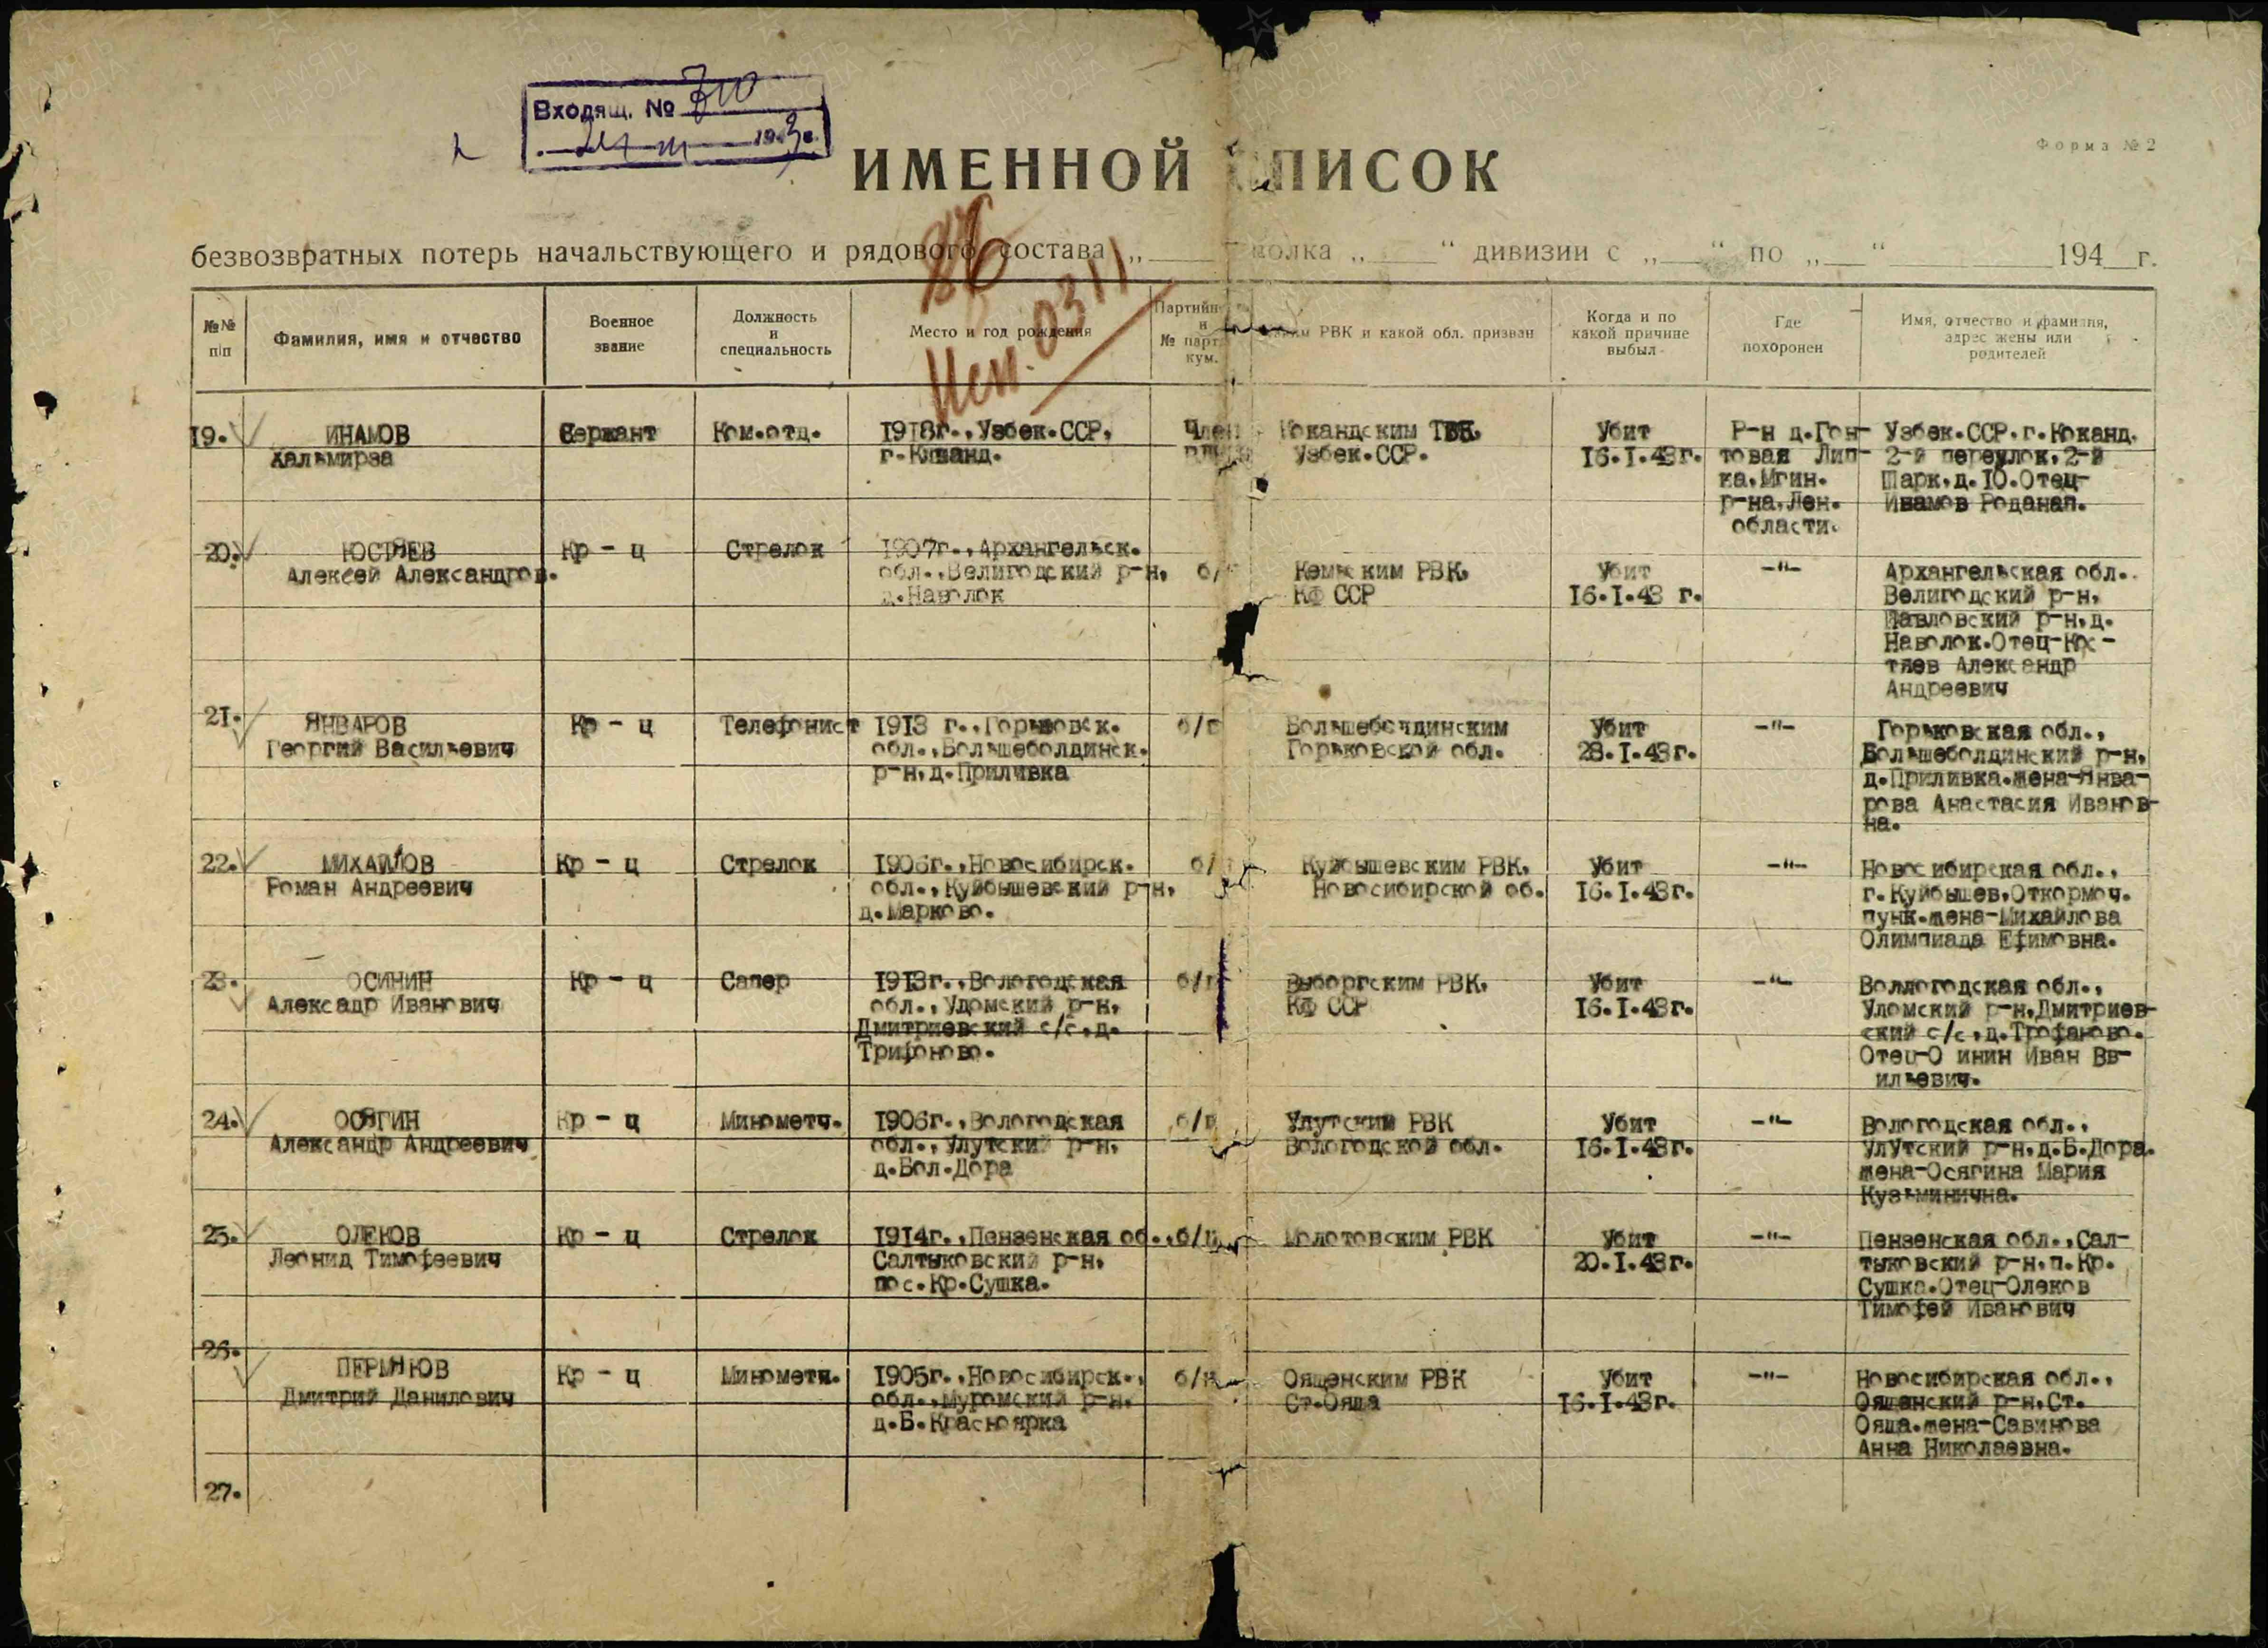 Входящ. №
1943г.
Форма № 2
ИМЕННОЙ СПИСОК
безвозвратных потерь начальствующего и рядового состава „ полка „ “ дивизии с „ “ по „ “ 194 г.
№№ п/п
Фамилия, имя и отчество
Военное звание
Должность и специальность
Место и год рождения
Партийн. и № парт. кум.
РВК и какой обл. призван
Когда и по какой причине выбыл
Где похоронен
Имя, отчество и фамилия, адрес жены или родителей
86
Исп. 0311
19.
ИНАМОВ
Хальмирза
Сержант
Ком.отд.
1918г.,Узбек.ССР,
г.Коканд.
Член
Кокандским ГВК,
Узбек.ССР.
Убит
16.I.43г.
Р-н д.Гон-
товая Лип-
ка,Мгин.
р-на,Лен.
области.
Узбек.ССР.г.Коканд.
2-й переулок,2-й
Парк,д.10.Отец-
Инамов Роданап.
20.
ЮСТЯЕВ
Алексей Александров.
Кр - ц
Стрелок
1907г.,Архангельск.
обл.,Велигодский р-н,
д.Наволок
б/
Кемьским РВК,
КФ ССР
Убит
16.I.43 г.
-"-
Архангельская обл..
Велигодский р-н,
Павловский р-н,д.
Наволок.Отец-Юс-
тяев Александр
Андреевич
21.
ЯНВАРОВ
Георгий Васильевич
Кр - ц
Телефонист
1913 г.,Горьковск.
обл.,Большеболдинск.
р-н,д.Приливка
б/п
Большеболдинским
Горьковской обл.
Убит
28.I.43г.
-"-
Горьковская обл.,
Большеболдинский р-н,
д.Приливка.жена-Янва-
рова Анастасия Иванов-
на.
22.
МИХАЙЛОВ
Роман Андреевич
Кр - ц
Стрелок
1906г.,Новосибирск.
обл.,Куйбышевский р-н,
д.Марково.
б/
Куйбышевским РВК,
Новосибирской об.
Убит
16.I.43г.
-"-
Новосибирская обл.,
г.Куйбышев.Откормоч.
пунк.жена-Михайлова
Олимпиада Ефимовна.
23.
ОСИНИН
Алексадр Иванович
Кр - ц
Сапер
1913г.,Вологодская
обл.,Удомский р-н,
Дмитриевский с/с,д.
Трифоново.
б/п
Выборгским РВК,
КФ ССР
Убит
16.I.43г.
-"-
Воллогодская обл.,
Уломский р-н,Дмитриев-
ский с/с,д.Трофаново.
Отец-О инин Иван Вв-
ильевич.
24.
ОСЯГИН
Александр Андреевич
Кр - ц
Минометч.
1906г.,Вологодская
обл.,Улутский р-н,
д.Бол.Дора
б/п
Улутским РВК
Вологодской обл.
Убит
16.I.43г.
-"-
Вологодская обл.,
УлУтский р-н,д.Б.Дора.
жена-Осягина Мария
Кузьминична.
25.
ОЛЕКОВ
Леонид Тимофеевич
Кр - ц
Стрелок
1914г.,Пензенская об.,
Салтыковский р-н,
пос.Кр.Сушка.
б/п
Молотовским РВК
Убит
20.I.43г.
-"-
Пензенская обл.,Сал-
тыковский р-н.п.Кр.
Сушка.Отец-Олеков
Тимофей Иванович
26.
ПЕРМЯКОВ
Дмитрий Данилович
Кр - ц
Минометч.
1905г.,Новосибирск.,
обл.,Муромский р-н,
д.Б.Красноярка
б/п
Ояшенским РВК
Ст.Ояша
Убит
16.I.43г.
-"-
Новосибирская обл.,
Ояшенский р-н.Ст.
Ояша.жена-Савинова
Анна Николаевна.
27.